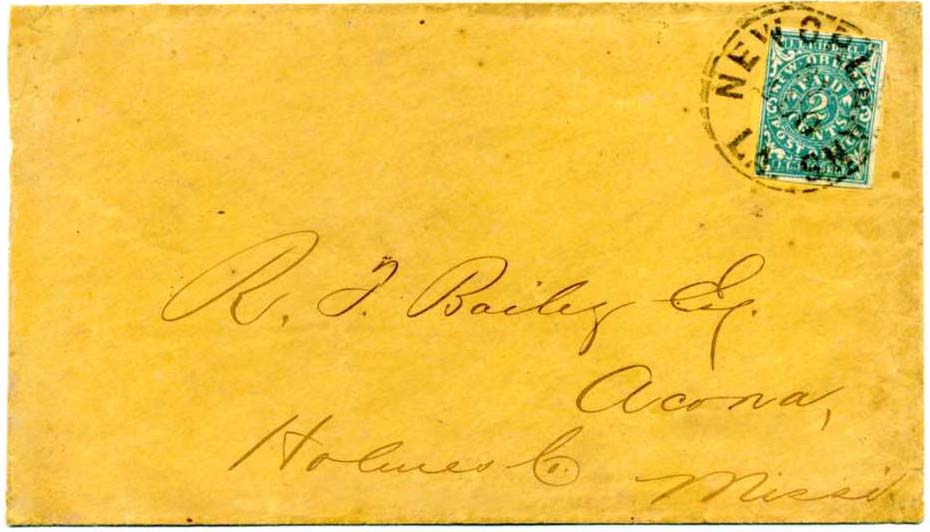 NEW ORLEANS
J. L. RIDDELL
NEW ORLEANS
PAID
2
CENTS
POST OFFICE
R. T. Bailey Esq.
Acona,
Holmes Co.
Missi